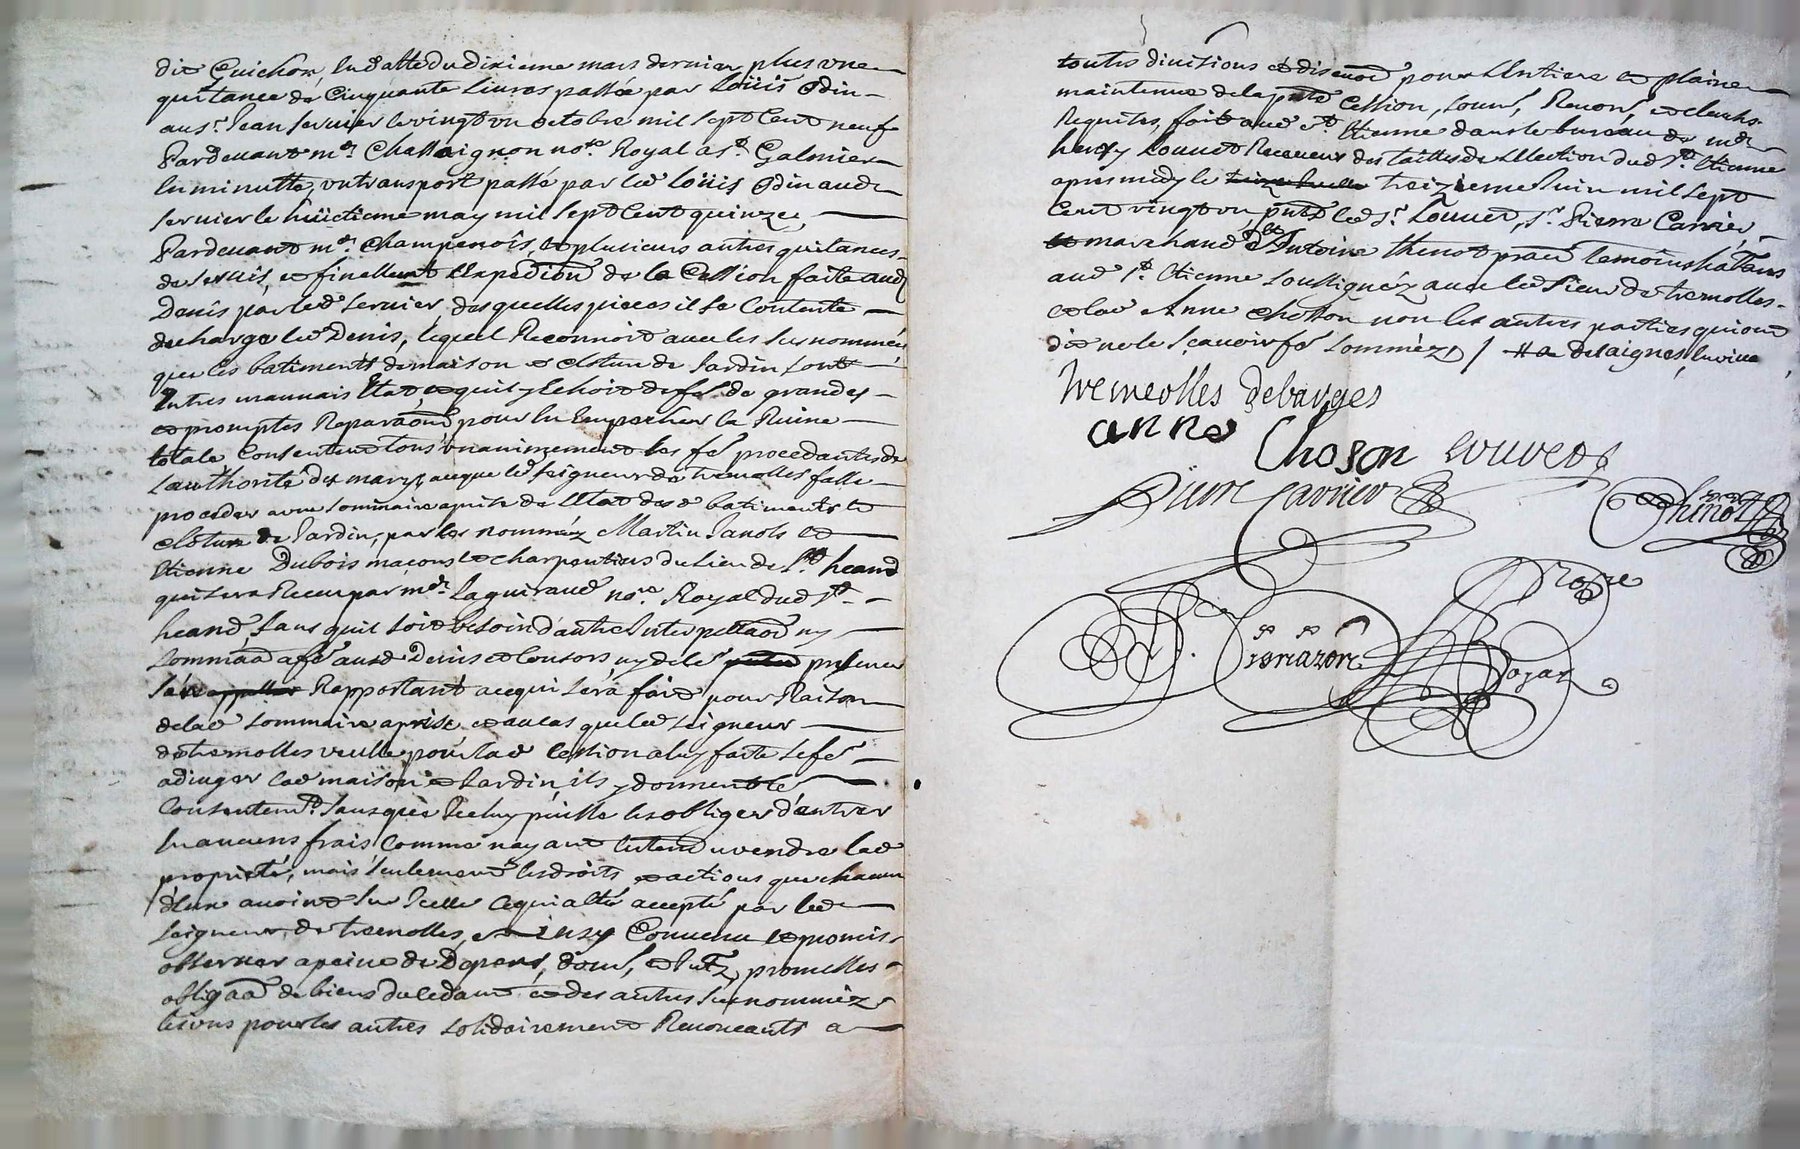 dit Guichon, en datte du dixieme mars dernier, plus une
quitance de Cinquante Livres passée par Loüis Odin
au sr. Jean Servier le vingt un octobre mil sept Cent neuf
Pardevant me. Chassaignon nore. Royal a st. Galmier
en minutte, un transport passé par led Loüis Odin aud
servier le huictieme may mil sept Cent quinze,
Pardevant me. Champenois, et plusieurs autres quitances
de servis, et finallemt Expedion de la Cession faite aud
Denis par led servier, desquelles pieces il se Contente
decharge led Denis, lequel Reconnoit avec les susnommés
que les batiments de maison et cloture de Jardin sont
en tres mauvais Etat et quil y Echoit de fe de grandes
et promptes Reparaons pour en Empecher la Ruine
totale Consentent tous unanimement les fe procedantes de
Lauthorité de marys, acque led seigneur de tremolles fasse
proceder a une sommaire aprise de l'Etat desd batiments et
cloture de Jardin, par les nommés Martin Janols et
Etienne Dubois maçons et charpentiers du Lieu de st heand
qui sera Receu par me. Laguiraud nore. Royal dud st.
heand, sans quil soit besoin d'autre Interpellaon ny
sommaon a fe aud Denis et Consors, ny de les presence
Rapportant acequi sera fait pour Raison
delad sommaire aprise, et au cas que led seigneur
de tremolles veulle pour lad Cession a luy faite se fe
adjuger lad maison et Jardin, ils y donnent le
Consentemt. sans que Iceluy puisse les obliger d'entrer
en aucuns frais Comme nayant entendu vendre lad
proprieté, mais seulement les droits et actions que chacun
d'eux avoint sur Icelle Ce qui a Eté accepté par led
seigneur de tremolles, et ainsy Convenu et promis
observer a peine de Depens, doms, et Intz, promesses
obligaon de biens du Cedant et des autres susnommez
les uns pour les autres solidairement Renonceants a
toutes divisions et discuon pour l'Entiere et plaine
maintenue de la pnte Cession, soums, Renons, et clauses
Requises, fait aud st. Etienne dans le bureau de me
henry Louvet Receveur des tailles de l'Election dud st. Etienne
apres midy le treizieme Juin mil sept
Cent vingt un pnts led sr. Louvet, sr. Pierre Carrier
marchand et Antoine thinot praen temoins hatans
aud st. Etienne soussignéz avec led sieur de tremolles
et lad Anne choson non les autres parties qui ont
dit ne le sçavoir fe sommez / de saignes, en vive
tremeolles debarges
anne Choson Louvet
Pierre Carrier
Thinot
Royer